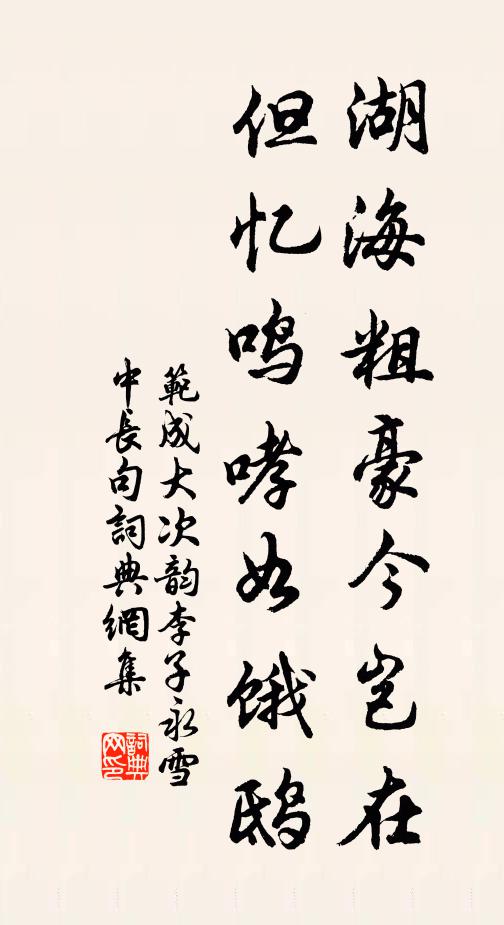 湖海粗豪今岂在
但忆鸣哮如饿鸱
範成大次韵李子永雪
中長句詞典網集
詞典
网印